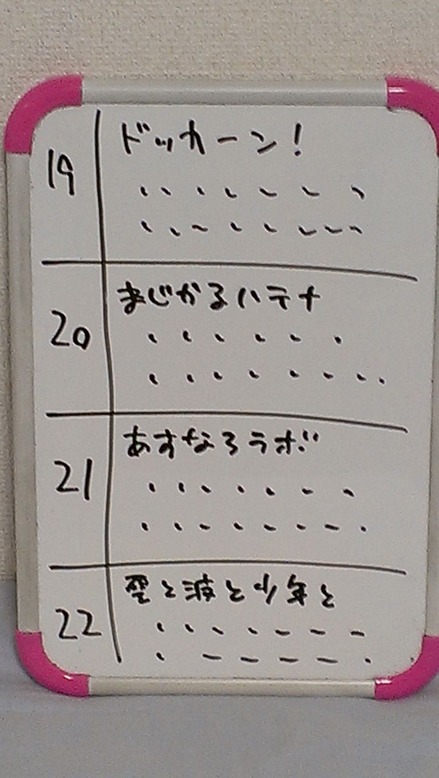 19
ドッカーン!
20
まじかるハテナ
21
あすなろラボ
22
と波と少年と